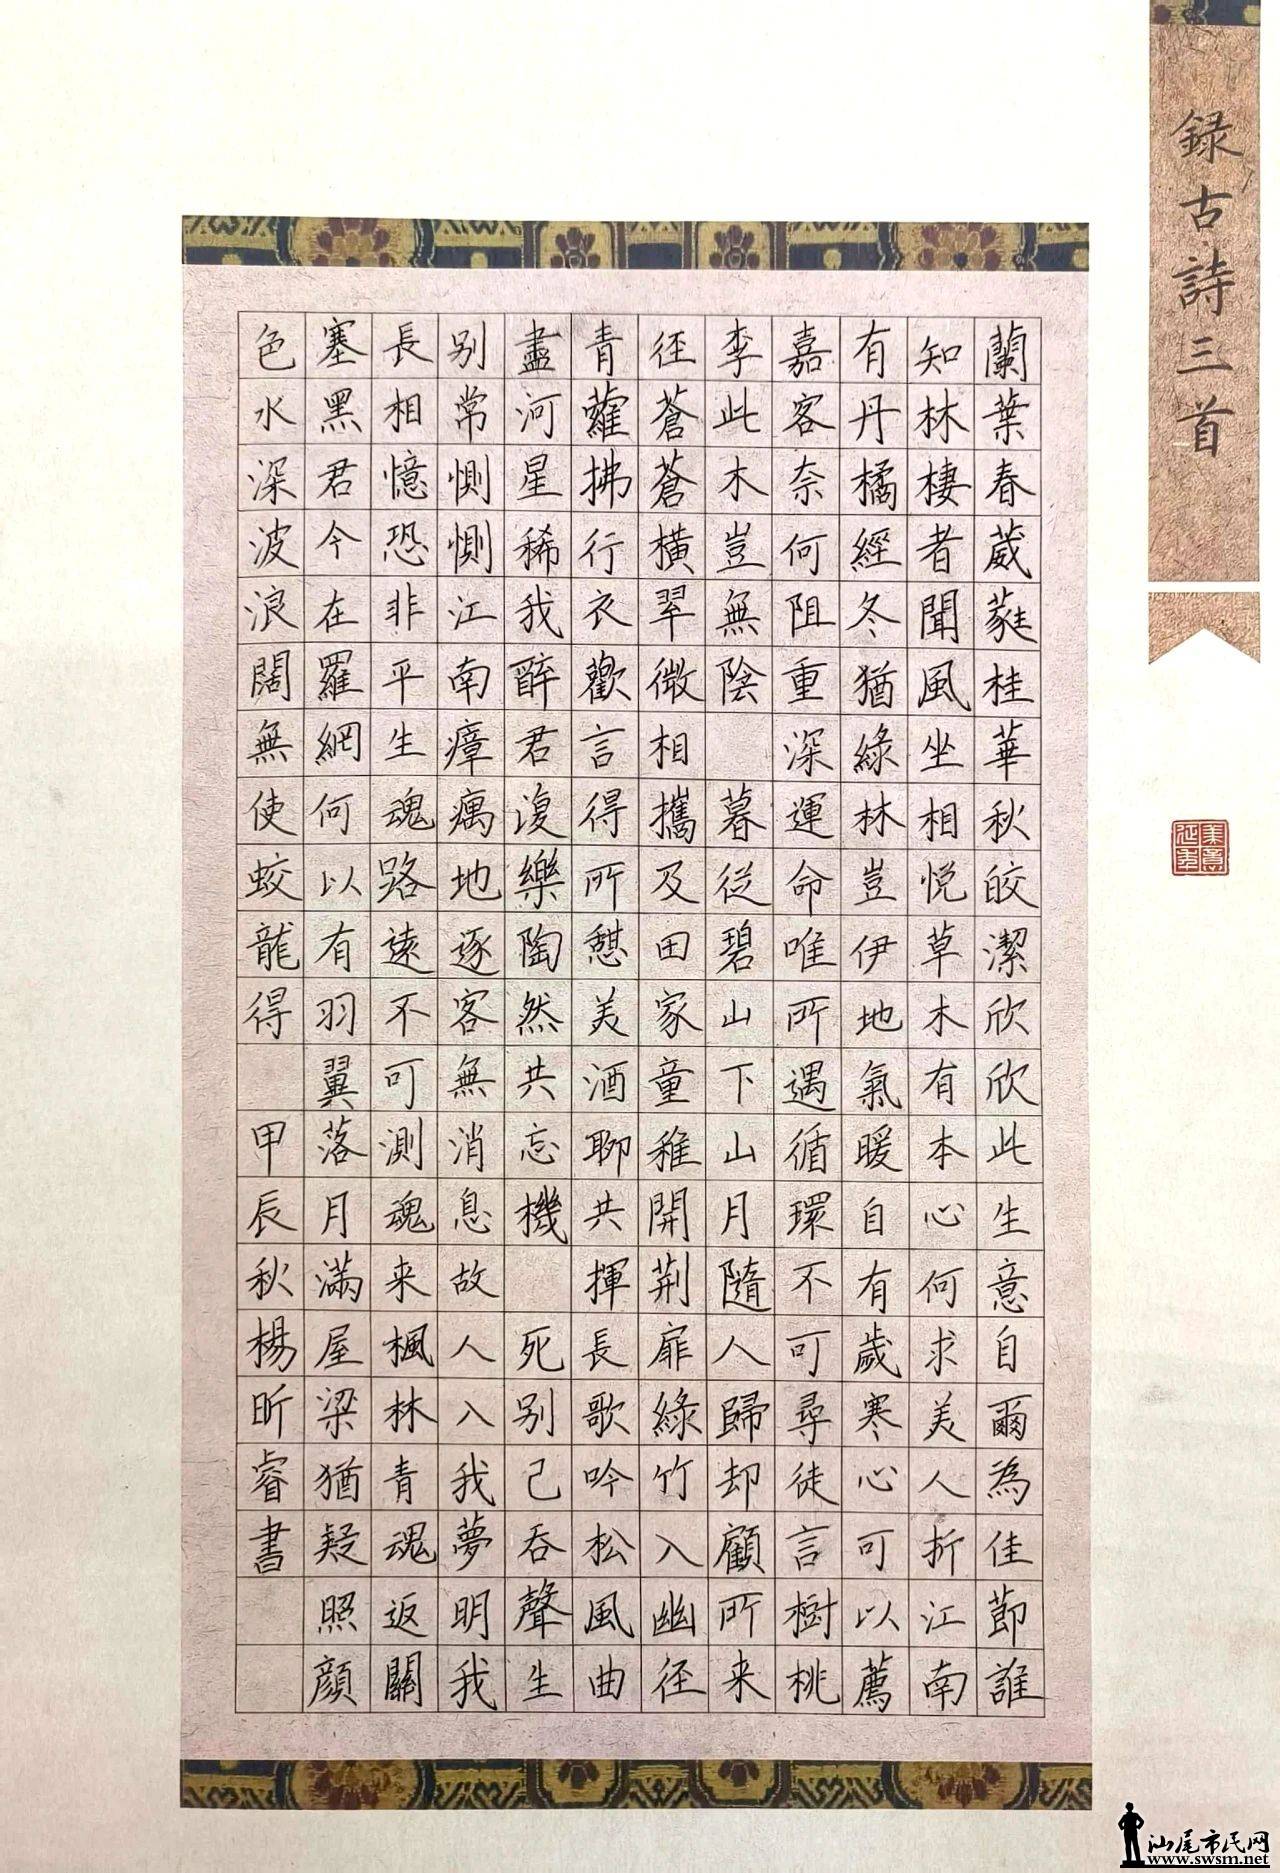 録古詩三首
蘭葉春葳蕤桂華秋皎潔欣欣此生意自爾為佳節誰
知林棲者聞風坐相悅草木有本心何求美人折江南
有丹橘經冬猶綠林豈伊地氣暖自有歲寒心可以薦
嘉客奈何阻重深運命唯所遇循環不可尋徒言樹桃
李此木豈無陰 暮從碧山下山月隨人歸却顧所来
径蒼蒼橫翠微相攜及田家童稚開荆扉綠竹入幽径
青蘿拂行衣歡言得所憩美酒聊共揮長歌吟松風曲
盡河星稀我醉君復樂陶然共忘機 死别己吞聲生
别常惻惻江南瘴癘地逐客無消息故人入我夢明我
長相憶恐非平生魂路遠不可測魂来楓林青魂返關
塞黑君今在羅網何以有羽翼落月滿屋梁猶疑照顏
色水深波浪闊無使蛟龍得 甲辰秋楊昕睿書
汕尾市民网
www.swsm.net